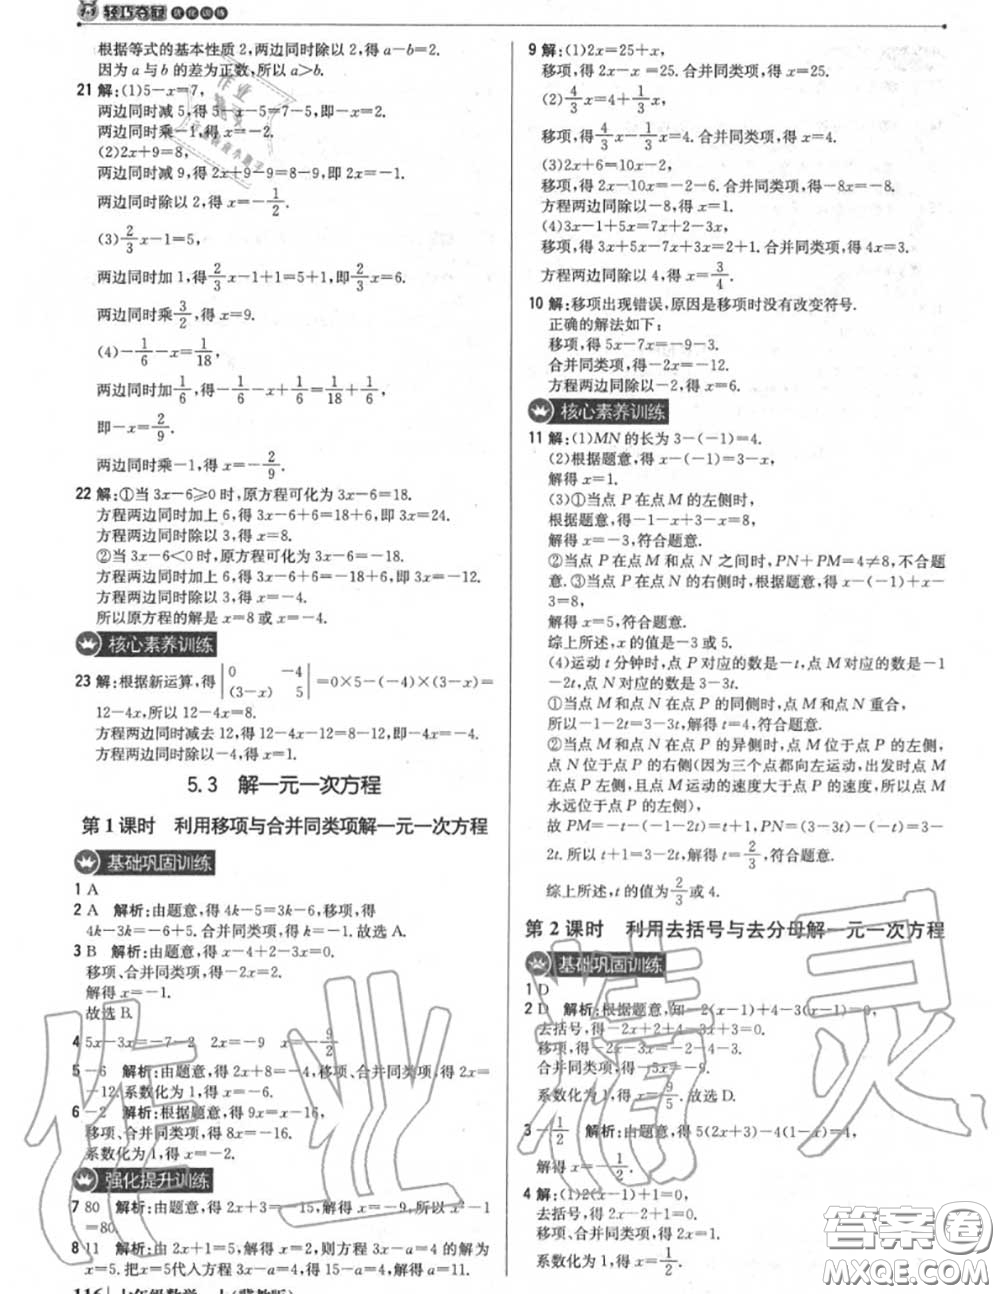 轻巧夺冠 优化训练
根据等式的基本性质2,两边同时除以2,得a-b=2.
因为a与b的差为正数,所以a>b.
21 解:(1)5-x=7,
两边同时减5,得5-x-5=7-5,即-x=2.
两边同时乘-1,得x=-2.
(2)2x+9=8,
两边同时减9,得2x+9-9=8-9,即2x=-1.
两边同时除以2,得x=-1/2.
(3)2/3x-1=5,
两边同时加1,得2/3x-1+1=5+1,即2/3x=6.
两边同时乘3/2,得x=9.
(4)-1/6-x=1/18,
两边同时加1/6,得-1/6-x+1/6=1/18+1/6,
即-x=2/9.
两边同时乘-1,得x=-2/9.
22 解:①当3x-6⩾0时,原方程可化为3x-6=18.
方程两边同时加上6,得3x-6+6=18+6,即3x=24.
方程两边同时除以3,得x=8.
②当3x-6<0时,原方程可化为3x-6=-18.
方程两边同时加上6,得3x-6+6=-18+6,即3x=-12.
方程两边同时除以3,得x=-4.
所以原方程的解是x=8或x=-4.
核心素养训练
23 解:根据新运算,得|0 -4|
|(3-x) 5|=0×5-(-4)×(3-x)=
12-4x,所以12-4x=8.
方程两边同时减去12,得12-4x-12=8-12,即-4x=-4.
方程两边同时除以-4,得x=1.
5.3 解一元一次方程
第1课时 利用移项与合并同类项解一元一次方程
基础巩固训练
1 A
2 A 解析:由题意,得4k-5=3k-6,移项,得
4k-3k=-6+5.合并同类项,得k=-1.故选A.
3 B 解析:由题意,得x-4+2-3x=0.
移项、合并同类项,得-2x=2.
解得x=-1.
故选B.
4 5x-3x=-7-2 2x=-9 x=-9/2
5 -6 解析:由题意,得2x+8=-4,移项、合并同类项,得2x=
-12.系数化为1,得x=-6.
6 -2 解析:根据题意,得9x=x-16,
移项、合并同类项,得8x=-16.
系数化为1,得x=-2.
强化提升训练
7 80 解析:由题意,得2x+3=-15,解得x=-9,所以x²-1
=80.
8 11 解析:由2x+1=5,解得x=2,则方程x-a=4的解为
x=5.把x=5代入方程3x-a=4,得15-a=4,解得a=11.
116 七年级数学 上(冀教版)
9 解:(1)2x=25+x,
移项,得2x-x=25.合并同类项,得x=25.
(2)4/3x=4+1/3x,
移项,得4/3x-1/3x=4.合并同类项,得x=4.
(3)2x+6=10x-2,
移项,得2x-10x=-2-6.合并同类项,得-8x=-8.
方程两边同除以-8,得x=1.
(4)3x-1+5x=7x+2-3x,
移项,得3x+5x-7x+3x=2+1.合并同类项,得4x=3.
方程两边同除以4,得x=3/4.
10 解:移项出现错误,原因是移项时没有改变符号.
正确的解法如下:
移项,得5x-7x=-9-3.
合并同类项,得-2x=-12.
方程两边同除以-2,得x=6.
核心素养训练
11 解:(1)MN的长为3-(-1)=4.
(2)根据题意,得x-(-1)=3-x,
解得x=1.
(3)①当点P在点M的左侧时,
根据题意,得-1-x+3-x=8,
解得x=-3,符合题意.
②当点P在点M和点N之间时,PN+PM=4≠8,不合题
意.③当点P在点N的右侧时,根据题意,得x-(-1)+x-
3=8,
解得x=5,符合题意.
综上所述,x的值是-3或5.
(4)运动t分钟时,点P对应的数是-t,点M对应的数是-1
-2t,点N对应的数是3-3t.
①当点M和点N在点P的同侧时,点M和点N重合,
所以-1-2t=3-3t,解得t=4,符合题意.
②当点M和点N在点P的异侧时,点M位于点P的左侧,
点N位于点P的右侧(因为三个点都向左运动,出发时点M
在点P左侧,且点M运动的速度大于点P的速度,所以点M
永远位于点P的左侧),
故PM=-t-(-1-2t)=t+1,PN=(3-3t)-(-t)=3-
2t.所以t+1=3-2t,解得t=2/3,符合题意.
综上所述,t的值为2/3或4.
第2课时 利用去括号与去分母解一元一次方程
基础巩固训练
1 D
2 D 解析:根据题意,知-2(x-1)+4-3(x-1)=0,
去括号,得-2x+2+4-3x+3=0.
移项,得-2x-3x=-2-4-3.
合并同类项,得-5x=-9.
系数化为1,得x=9/5.故选D.
3 -1/2 解析:由题意,得5(2x+3)-4(1-x)=4,
解得x=-1/2.
4 解:(1)2(x-1)+1=0,
去括号,得2x-2+1=0.
移项、合并同类项,得2x=1.
系数化为1,得x=1/2.
作业精灵
答案卷
MXQE.COM